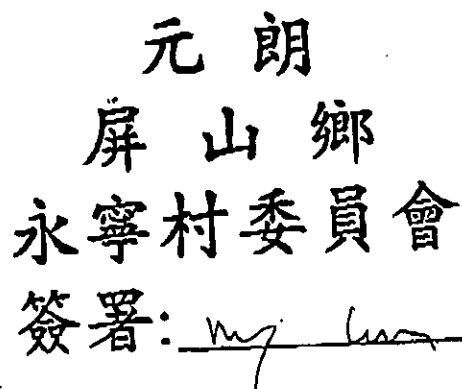 元朗
屏山鄉
永寧村委員會
簽署: